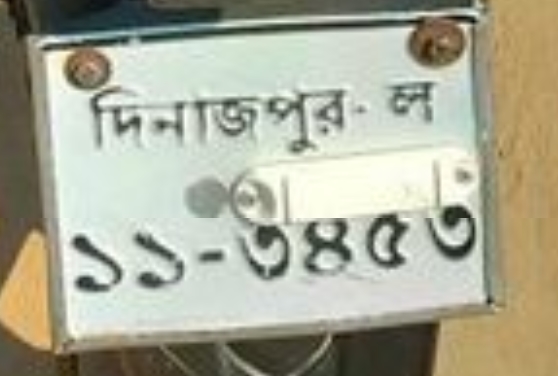 দিনাজপুর- ল
১১-৩৪৫৩